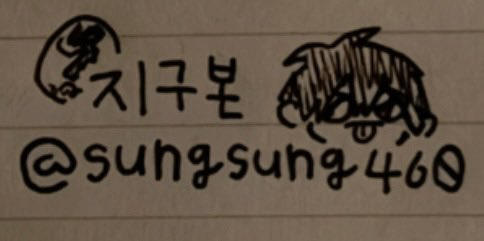 지구본
@sungsung460